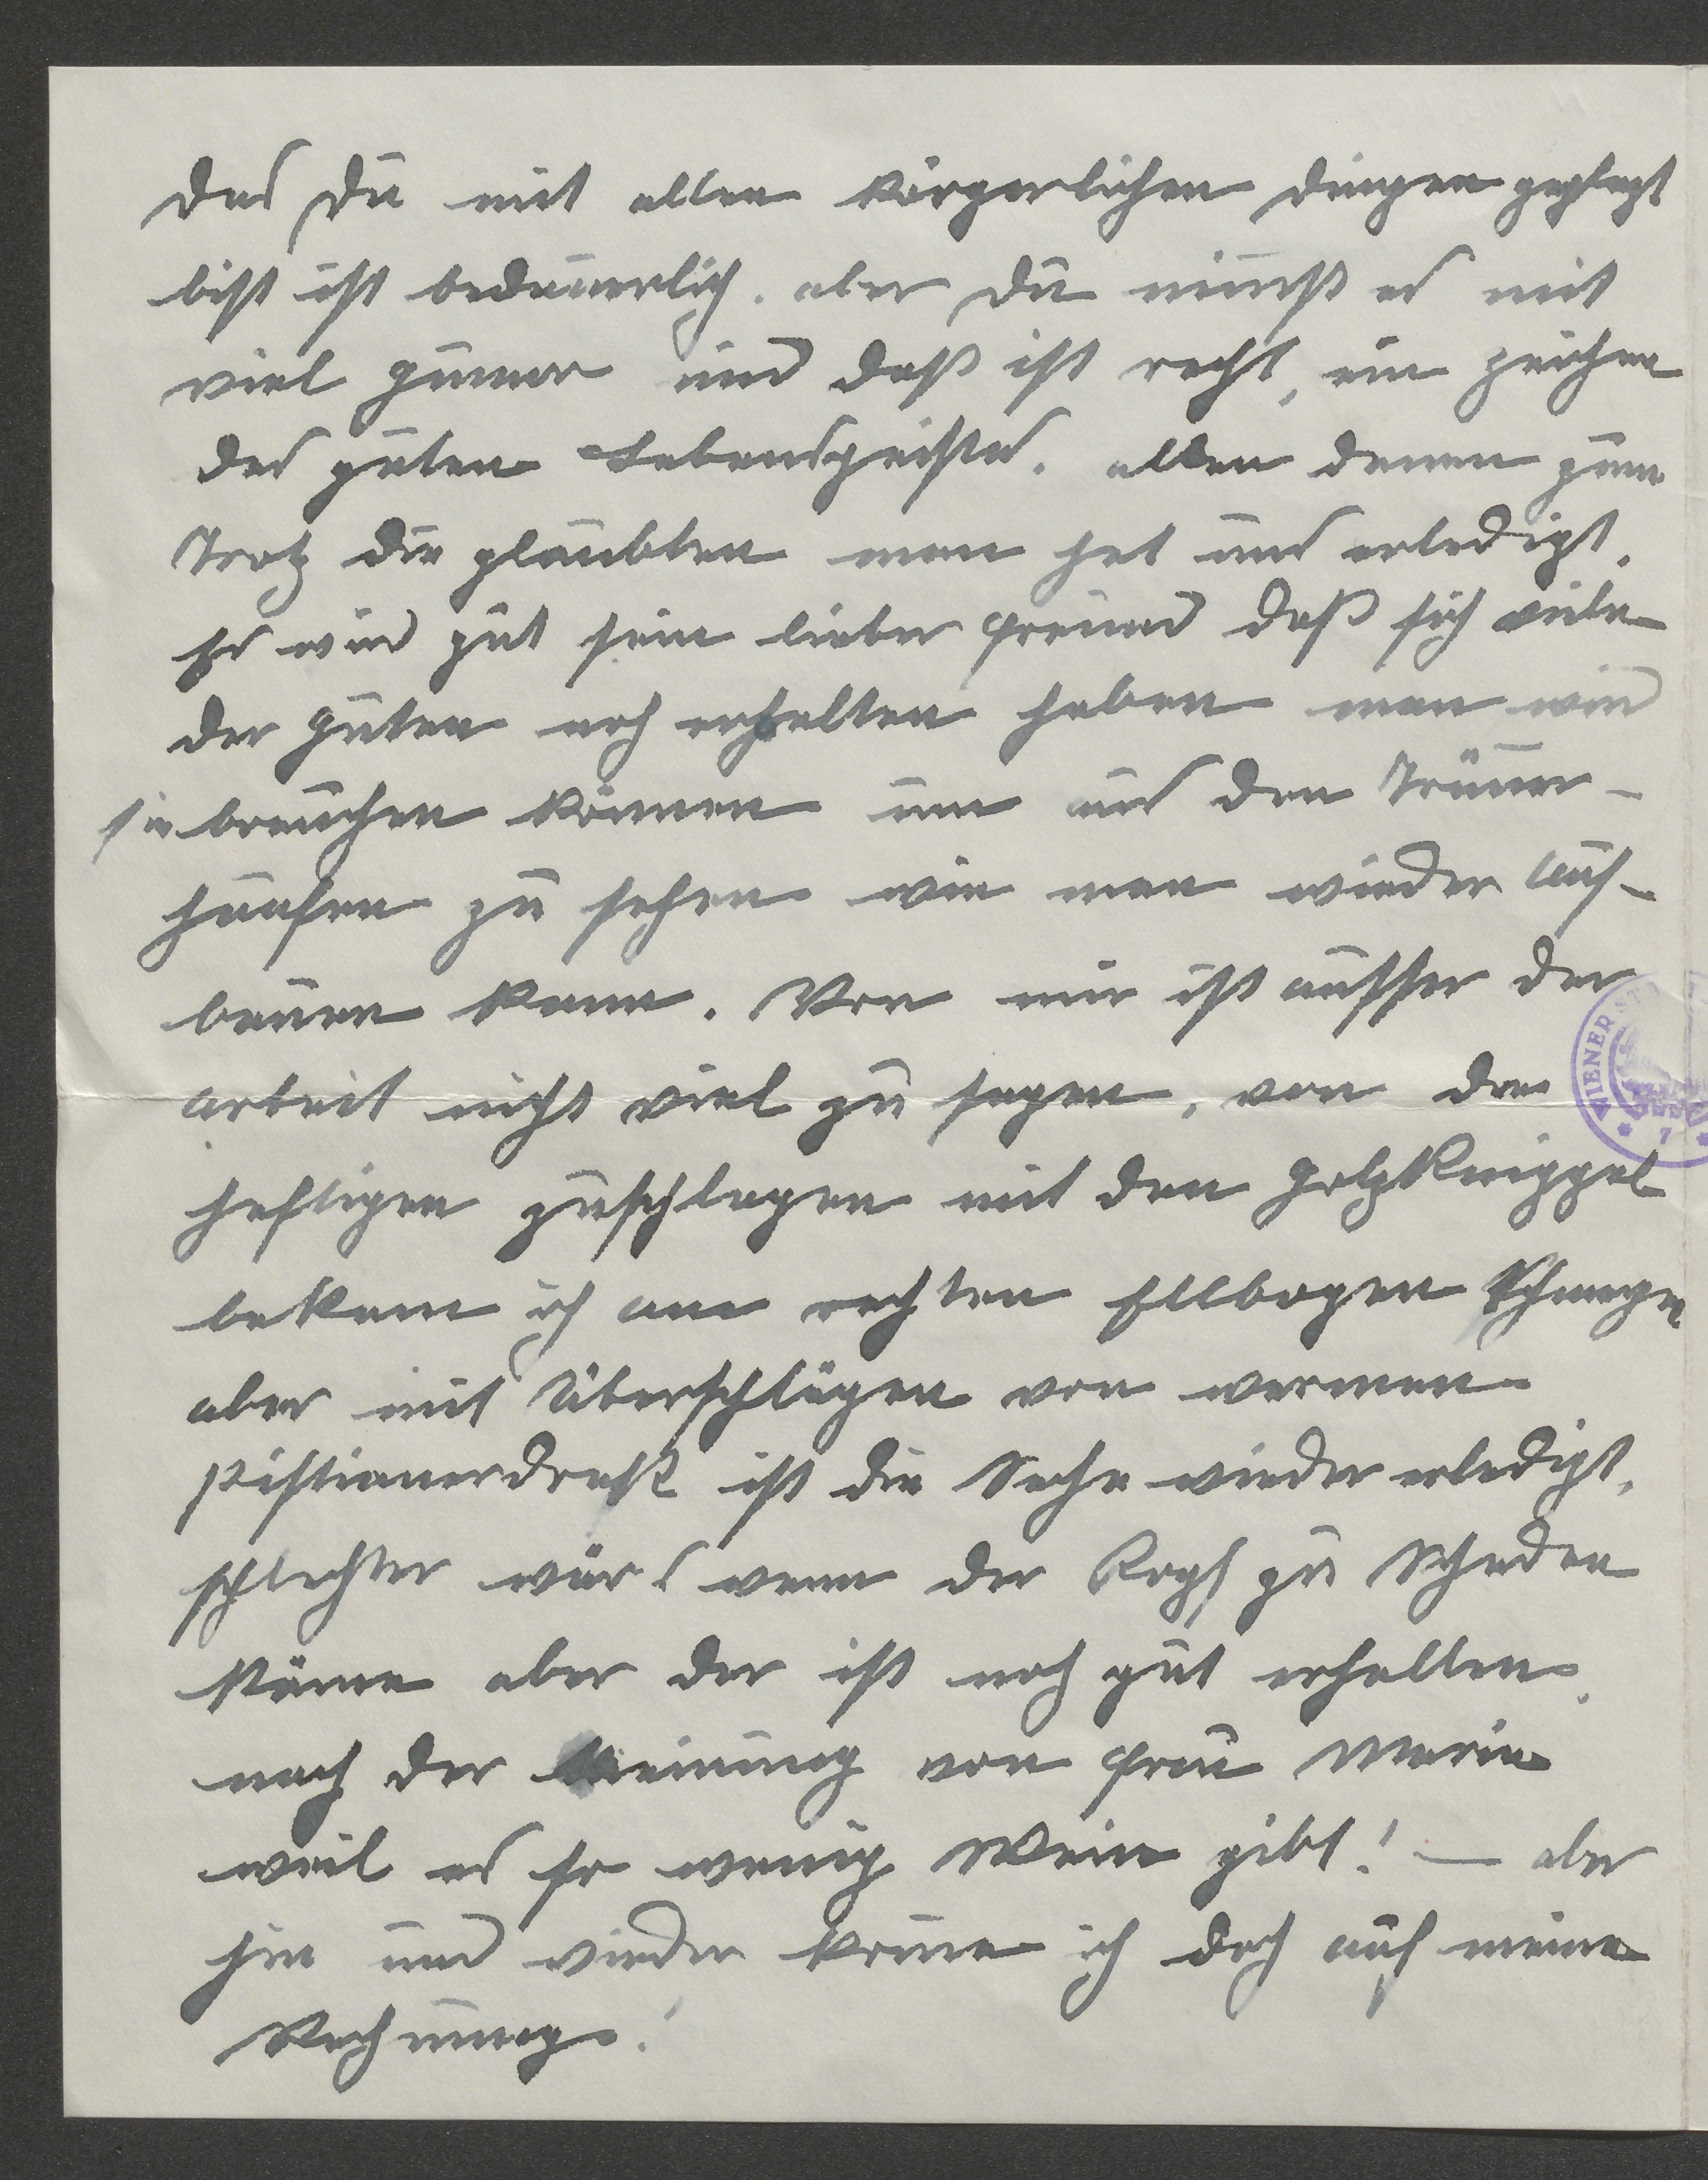 das Du mit allen körperlichen dingen geplagt
bist ist bedauerlich. aber du nimmst es mit
viel Humor und daß ist recht, ein zeichen
des guten Lebensgeistes. allen denen zum
Trotz die glaubten man hat uns erledigt.
Es wird gut sein lieber Freund daß sich viele
der Guten noch erhalten haben man wird
sie brauchen können um aus den Trümer-
haufen zu sehen wie man wieder auf-
bauen kann. Von mir ist ausser der
arbeit nicht viel zu sagen, von den
heftigen zuschlagen mit den Holzknippel
bekam ich am rechten Ellbogen
aber mit Überschlägen von warmen
Pistianerdreck ist die Sache wieder erledigt,
schlechter wär's wenn der Kopf zu Schaden
käme aber der ist noch gut erhalten,
nach der Meinung von Frau Maria
weil es so wenig Wein gibt! — aber
hin und wieder komme ich doch auf meine
Rechnung!
WIENER ST
* 7 *